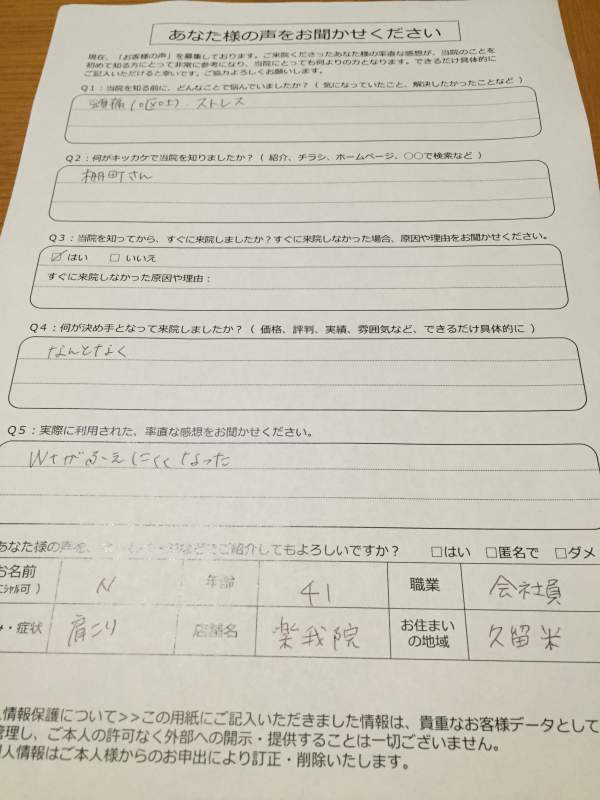 あなた様の声をお聞かせください
現在、「お客様の声」を募集しております。ご来院くださったあなた様の率直な感想が、当院のことを
初めて知る方にとって非常に参考になり、当院にとっても何よりの力となります。できるだけ具体的に
ご記入いただけると幸いです。ご協力よろしくお願いします。
Q1：当院を知る前に、どんなことで悩んでいましたか？（ 気になっていたこと、解決したかったことなど ）
頭痛 ストレス
Q2：何がキッカケで当院を知りましたか？（ 紹介、チラシ、ホームページ、○○で検索など ）
棚町さん
Q3：当院を知ってから、すぐに来院しましたか？すぐに来院しなかった場合、原因や理由をお聞かせください。
☑はい □いいえ
すぐに来院しなかった原因や理由：
Q4：何が決め手となって来院しましたか？（ 価格、評判、実績、雰囲気など、できるだけ具体的に ）
なんとなく
Q5：実際に利用された、率直な感想をお聞かせください。
Wtがふえにくくなった
あなた様の声を、 ご紹介してもよろしいですか？ □はい □匿名で □ダメ
お名前 N 年齢 41 職業 会社員
ニシャル可 ）
・症状 肩こり 店舗名 楽我院 お住まい 久留米
の地域
人情報保護について>>この用紙にご記入いただきました情報は、貴重なお客様データとして
管理し、ご本人の許可なく外部への開示・提供することは一切ございません。
人情報はご本人様からのお申出により訂正・削除いたします。